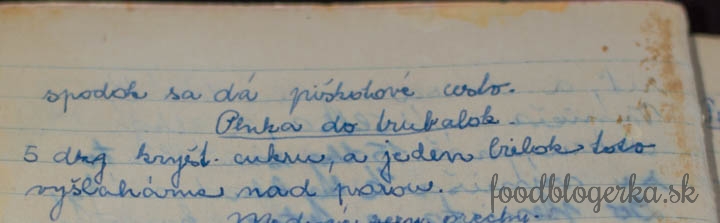 spodok sa dá piškotové cesto.
Penka do trubalok.
5 dkg kryšt. cukru, a jeden bielok toto
vyšlaháme nad parou.
foodblogerka.sk
Medové orechy.